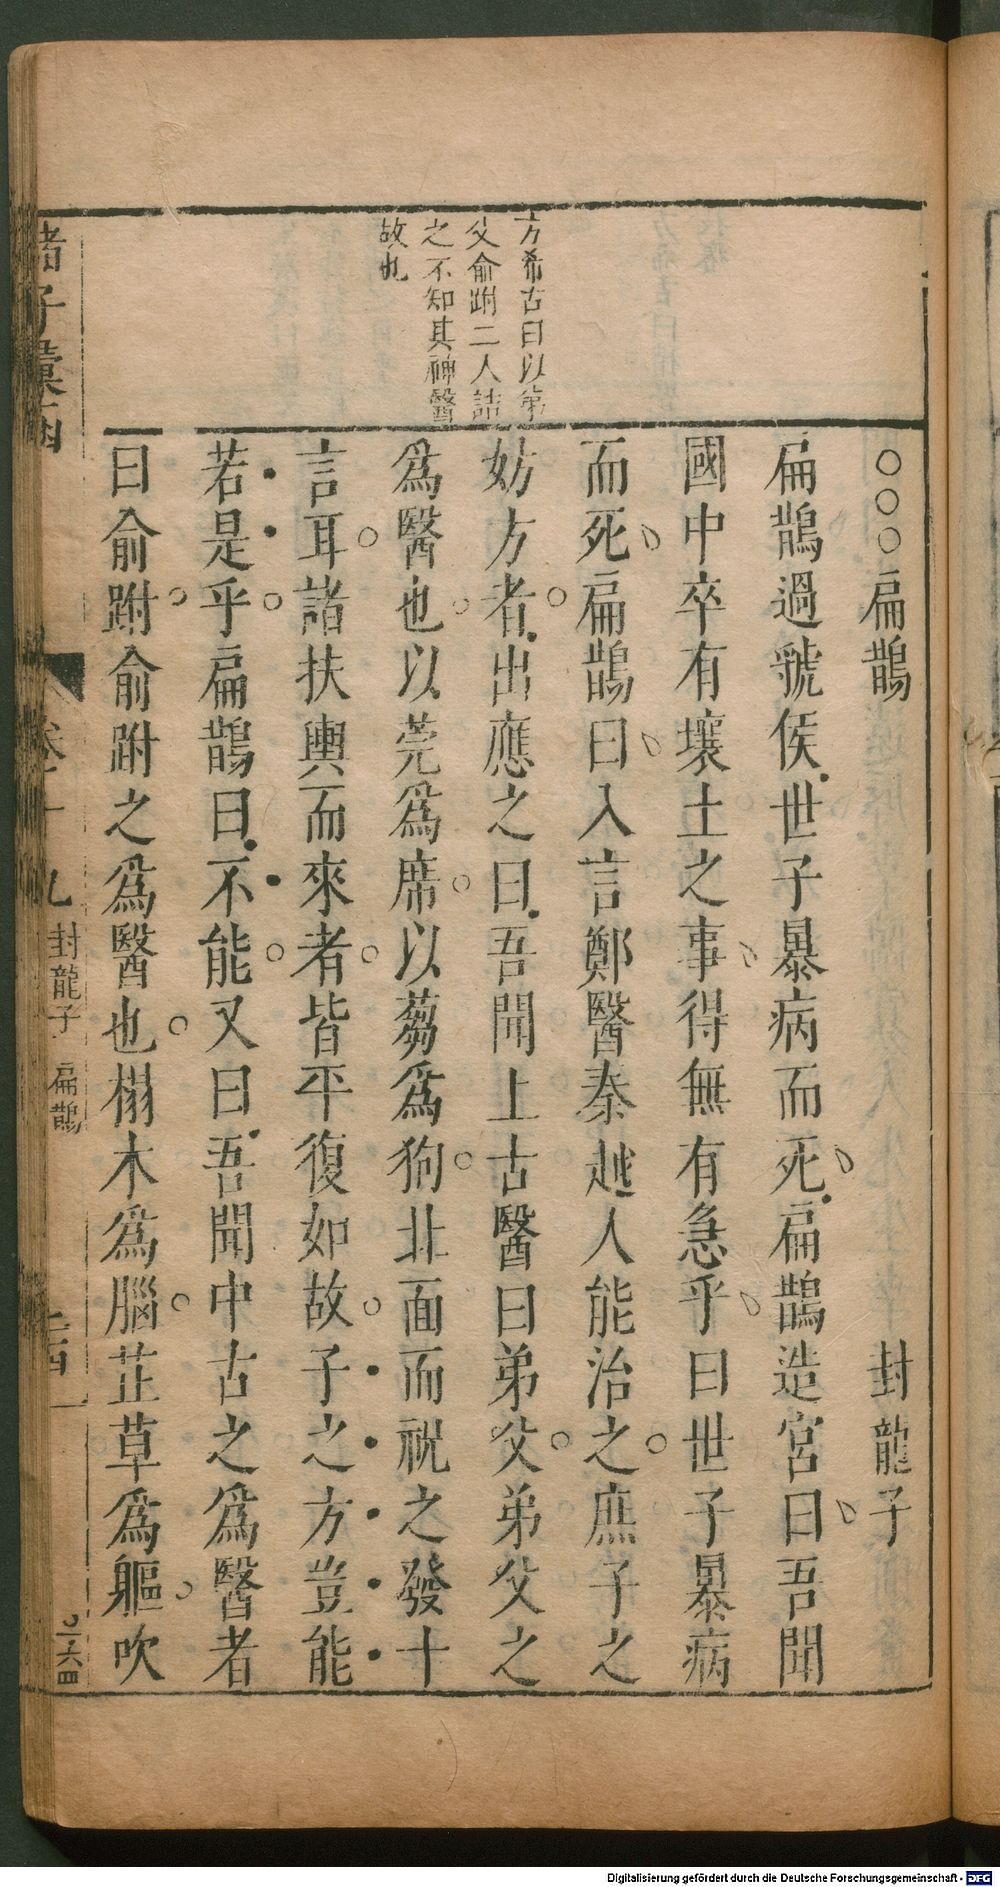 方希古曰以弟
父俞跗二人詰
之不知其神醫
故也
○○○扁鵲 封龍子
扁鵲過虢侯世子暴病而死扁鵲造宮曰吾聞
國中卒有壤土之事得無有急乎曰世子暴病
而死扁鵲曰入言鄭醫秦越人能治之庶子之
妨方者出應之曰吾聞上古醫曰弟父弟父之
為醫也以莞為席以蒭為狗北面而祝之發十
言耳諸扶輿而來者皆平復如故子之方豈能
若是乎扁鵲曰不能又曰吾聞中古之為醫者
曰俞跗俞跗之為醫也榻木為腦芷草為軀吹
諸子彙函 卷十九 封龍子 扁鵲
Digitalisierung gefördert durch die Deutsche Forschungsgemeinschaft - DFG